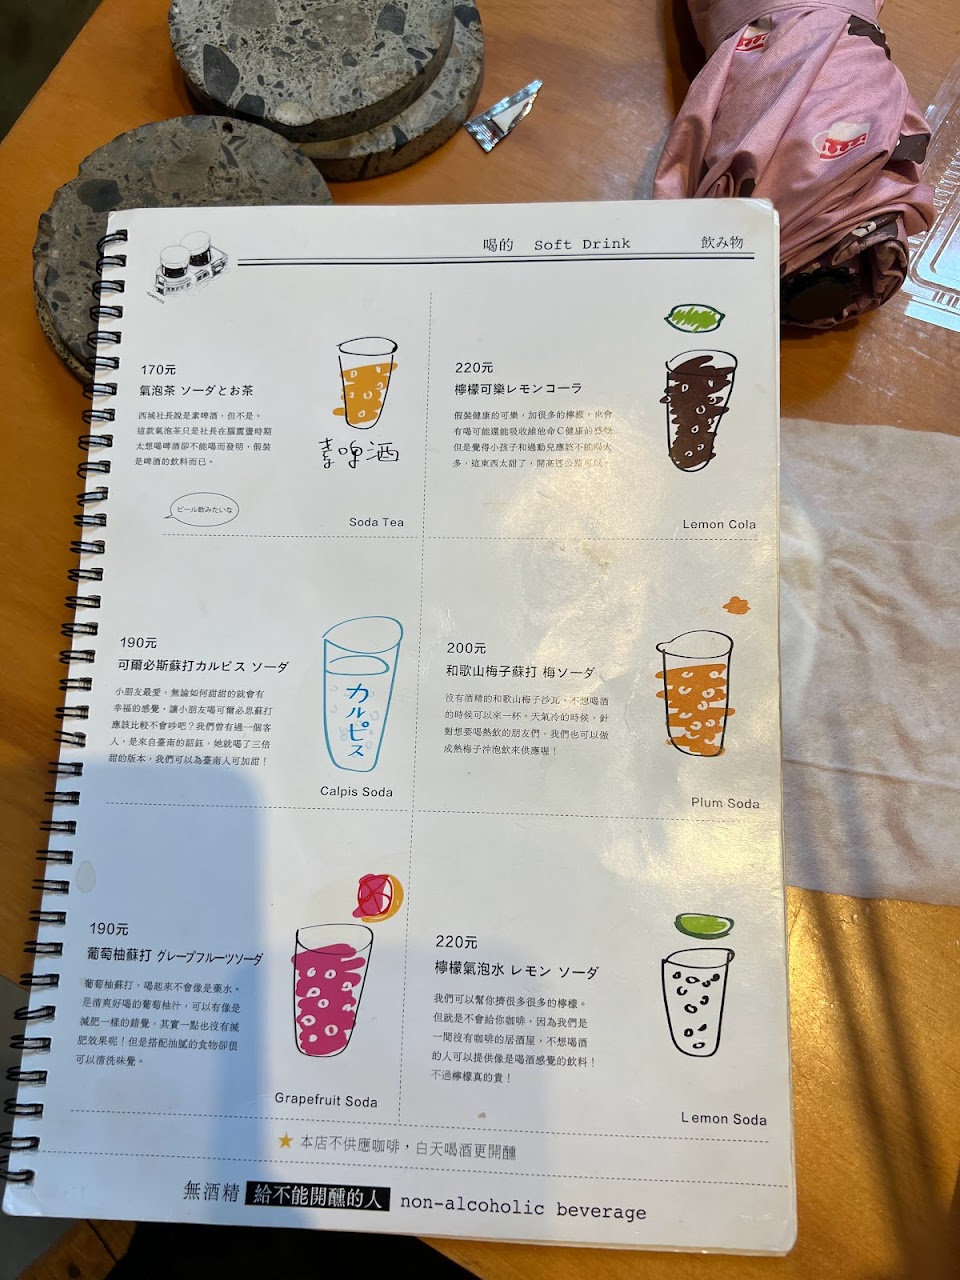 喝的 Soft Drink 飲み物
170元
氣泡茶 ソーダとお茶
西城社長說是素啤酒，但不是。
這款氣泡茶只是社長在腸震盪時期
太想喝啤酒卻不能喝而發明，假裝
是啤酒的飲料而已。
素啤酒
ビール飲みたいな
Soda Tea
220元
檸檬可樂レモンコーラ
假裝健康的可樂，加很多的檸檬，也會
有喝可能還能吸收維他命C健康的感受
但是覺得小孩子和過動兒應該不能喝太
多，這東西太甜了，開高速公路可以。
Lemon Cola
190元
可爾必斯蘇打カルピス ソーダ
小朋友最愛，無論如何甜甜的就會有
幸福的感覺，讓小朋友喝可爾必思蘇打
應該比較不會吵吧？我們曾有過一個客
人，是來自臺南的韶鈺，她就喝了三倍
甜的版本，我們可以為臺南人可加甜！
カルピス
Calpis Soda
200元
和歌山梅子蘇打 梅ソーダ
沒有酒精的和歌山梅子沙瓦，不想喝酒
的時候可以來一杯，天氣冷的時候，針
對想要喝熱飲的朋友們，我們也可以做
成熱梅子沖泡飲來供應喔！
Plum Soda
190元
葡萄柚蘇打 グレープフルーツソーダ
葡萄柚蘇打，喝起來不會像是藥水。
是清爽好喝的葡萄柚汁，可以有像是
減肥一樣的錯覺，其實一點也沒有減
肥效果呢！但是搭配油膩的食物卻很
可以清洗味覺。
Grapefruit Soda
220元
檸檬氣泡水 レモン ソーダ
我們可以幫你擠很多很多的檸檬。
但就是不會給你咖啡，因為我們是
一間沒有咖啡的居酒屋，不想喝酒
的人可以提供像是喝酒感覺的飲料！
不過檸檬真的貴！
Lemon Soda
★ 本店不供應咖啡，白天喝酒更開醺
無酒精 給不能開醺的人 non-alcoholic beverage